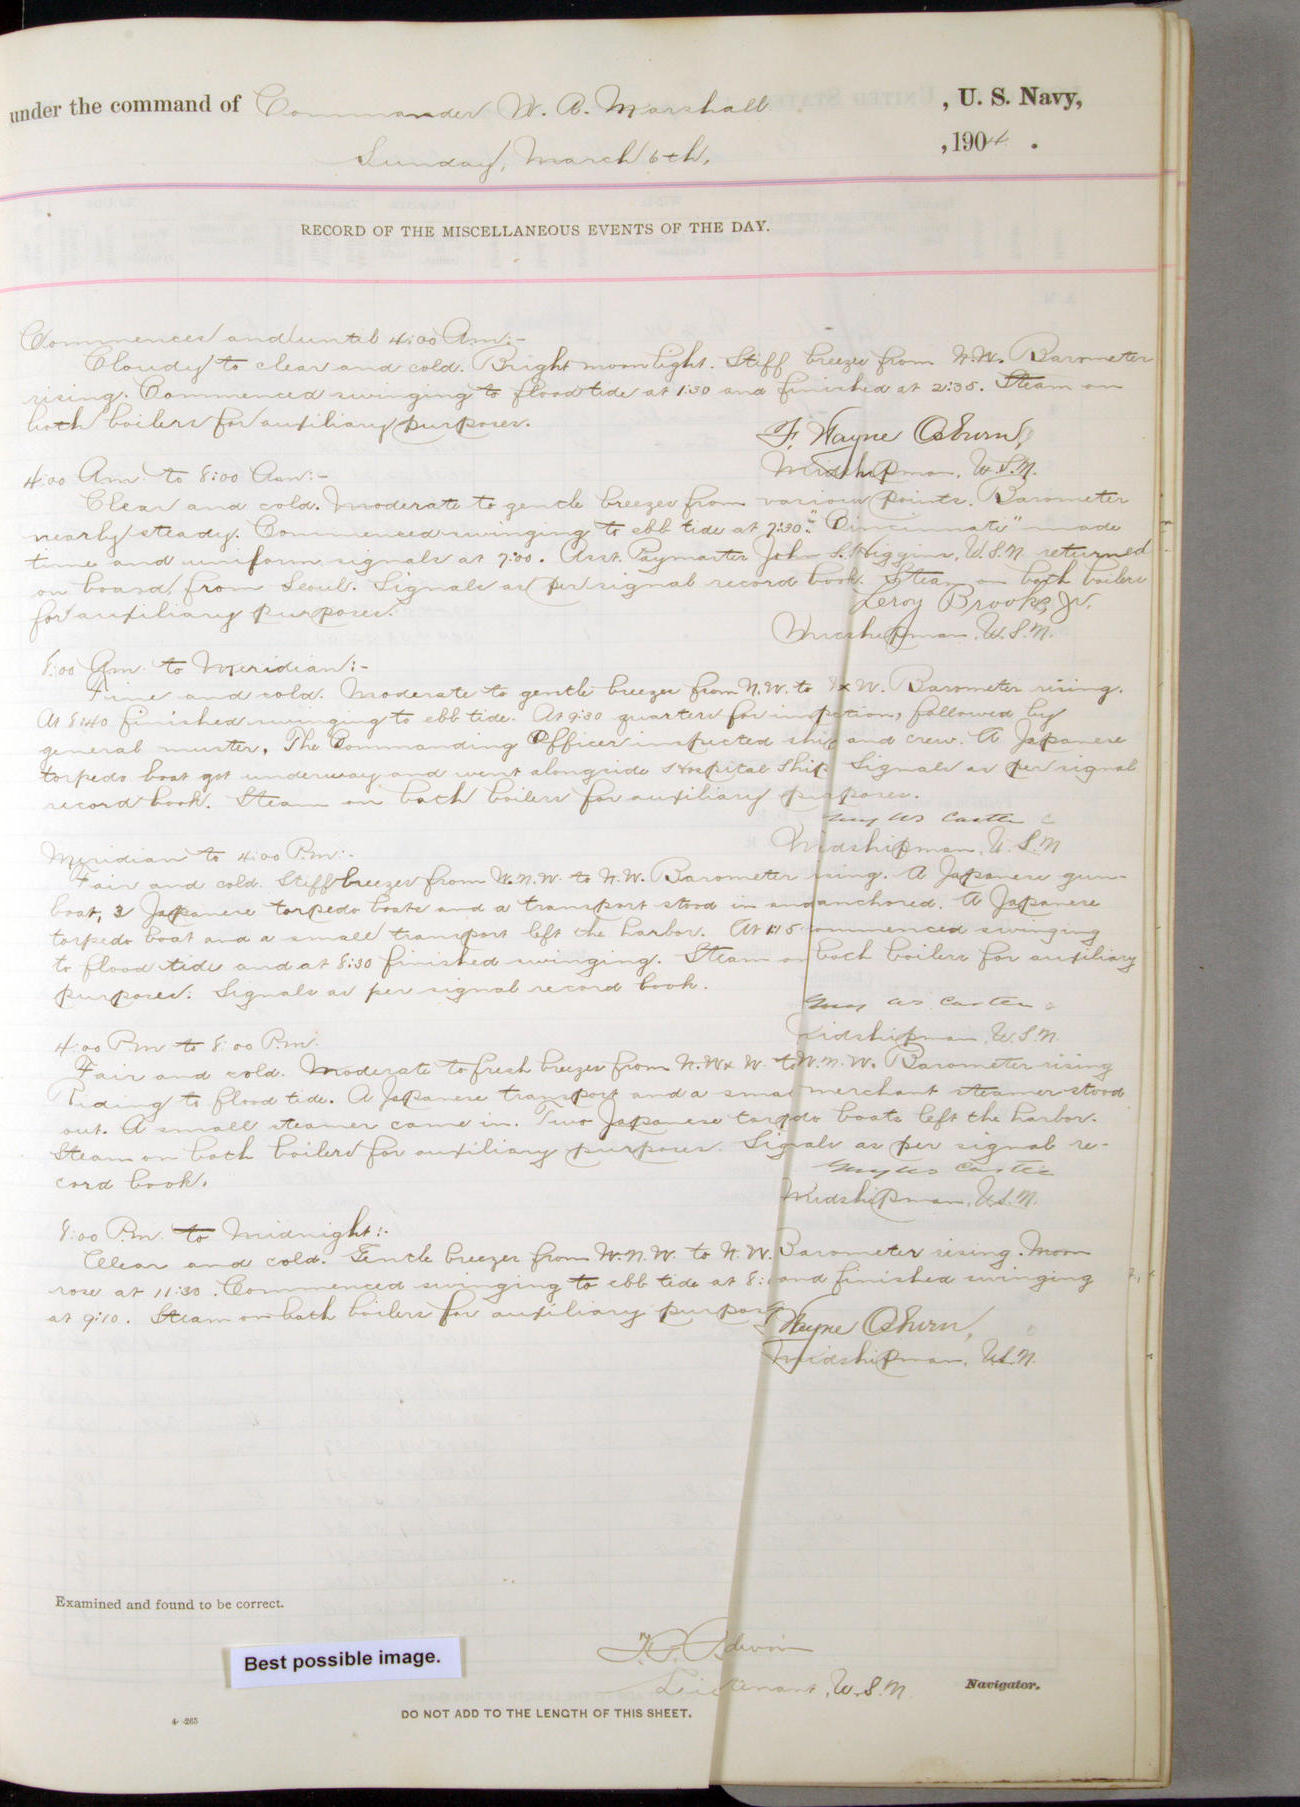 under the command of Commander W. A. Marshall , U. S. Navy,
Sunday, March 6th, , 1904 .
RECORD OF THE MISCELLANEOUS EVENTS OF THE DAY.
Commences and until 4:00 Am:-
Cloudy to clear and cold. Bright moonlight. Stiff breeze from N.W. Barometer
rising. Commenced swinging to flood tide at 1:30 and finished at 2:35. Steam on
both boilers for auxiliary purposes.
F. Wayne Osburn,
Midshipman, U.S.N.
4:00 Am. to 8:00 Am:-
Clear and cold. Moderate to gentle breezes from various points. Barometer
nearly steady. Commenced swinging to ebb tide at 7:30. "Cincinnati" made
time and uniform signals at 7:00. Asst. Paymaster John S. Higgins, U.S.N. returned
on board from Seoul. Signals as per signal record book. Steam on both boilers
for auxiliary purposes.
Leroy Brooks Jr.
Midshipman, U.S.N.
8:00 Am. to Meridian:-
Fine and cold. Moderate to gentle breezes from N.W. to W. Barometer rising.
At 8:40 finished swinging to ebb tide. At 9:30 quarters for inspection, followed by
general muster. The Commanding Officer inspected ship and crew. A Japanese
torpedo boat got underway and went alongside Hospital Ship. Signals as per signal
record book. Steam on both boilers for auxiliary purposes.
Guy W. Castle
Midshipman, U.S.N
Meridian to 4:00 P.m:-
Fair and cold. Stiff breezes from W.N.W. to N.W. Barometer rising. A Japanese gun-
boat, 3 Japanese torpedo boats and a transport stood in and anchored. A Japanese
torpedo boat and a small transport left the harbor. At 1:15 commenced swinging
to flood tide and at 8:30 finished swinging. Steam on both boilers for auxiliary
purposes. Signals as per signal record book.
Guy W. Castle
Midshipman, U.S.N.
4:00 P.m to 8:00 P.m.
Fair and cold. Moderate to fresh breezes from N.W x W. to W.N.W. Barometer rising
Tiding to flood tide. A Japanese transport and a small merchant steamer stood
out. A small steamer came in. Two Japanese torpedo boats left the harbor.
Steam on both boilers for auxiliary purposes. Signals as per signal re-
cord book.
Guy W. Castle
Midshipman, U.S.N.
8:00 P.m. to Midnight:-
Clear and cold. Gentle breezes from W.N.W. to N.W. Barometer rising. Moon
rose at 11:30. Commenced swinging to ebb tide at 8: and finished swinging
at 9:10. Steam on both boilers for auxiliary purposes
Wayne Osburn,
Midshipman, U.S.N.
Examined and found to be correct.
Best possible image.
Lieutenant, U.S.N. Navigator.
DO NOT ADD TO THE LENGTH OF THIS SHEET.
4-265